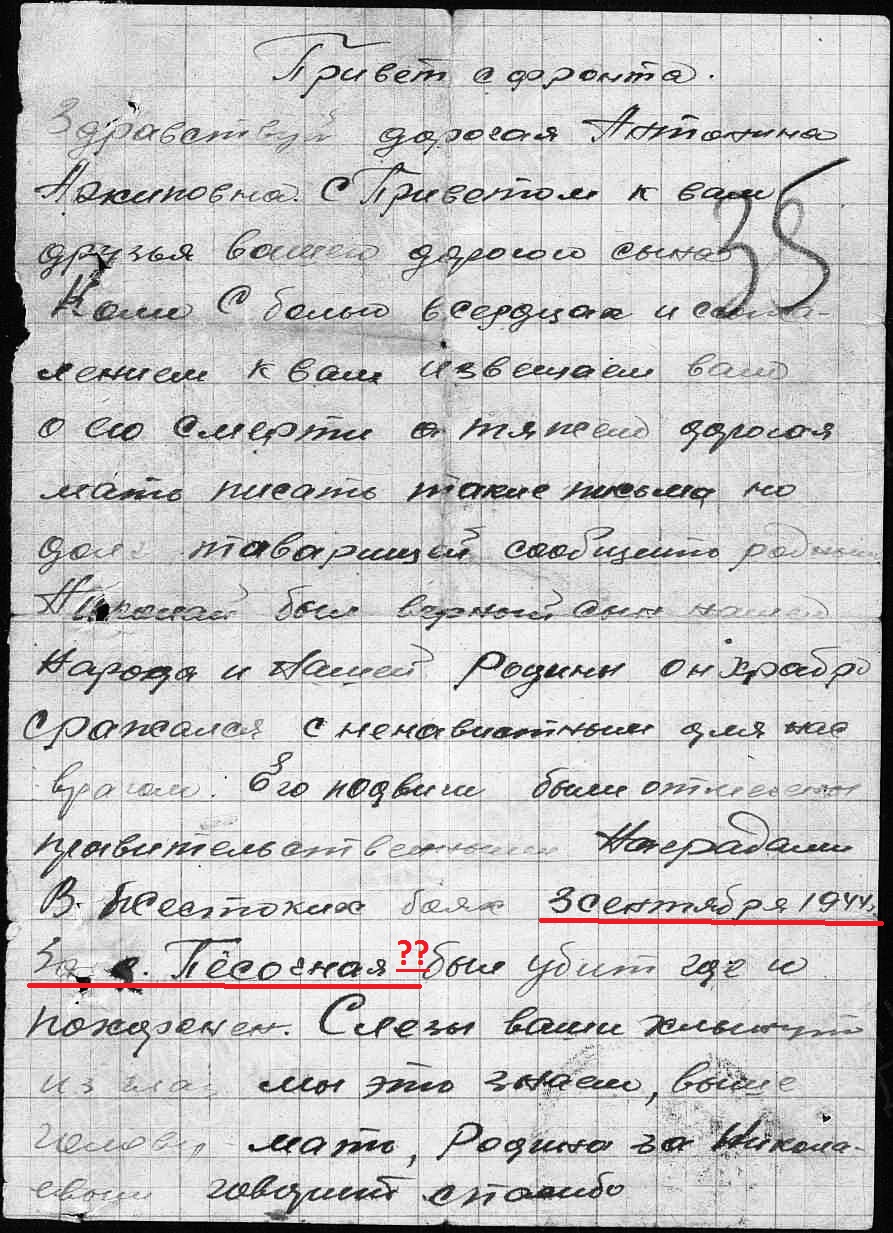 Привет с фронта.
Здравствуй дорогая Антонина
Архиповна. С Приветом к вам
35
друзья вашего дорогого сына
Коли С болью в сердцах и сожа-
лением к вам извещаем вам
о его смерти тяжело дорогая
мать писать такие письма но
долг таварищей сообщить родным
Николай был верный сын нашего
Народа и Нашей Родины он храбро
сражался с ненавистным для нас
врагом. Его подвиги были отмечены
правительственными Наградами
В жестоких боях 3 сентября 1944г.
За с. Пёсочная ?? был убит где и
похоронен. Слезы ваши хлынут
из глаз мы это знаем, выше
голову мать, Родина за Никола-
говорит спасибо